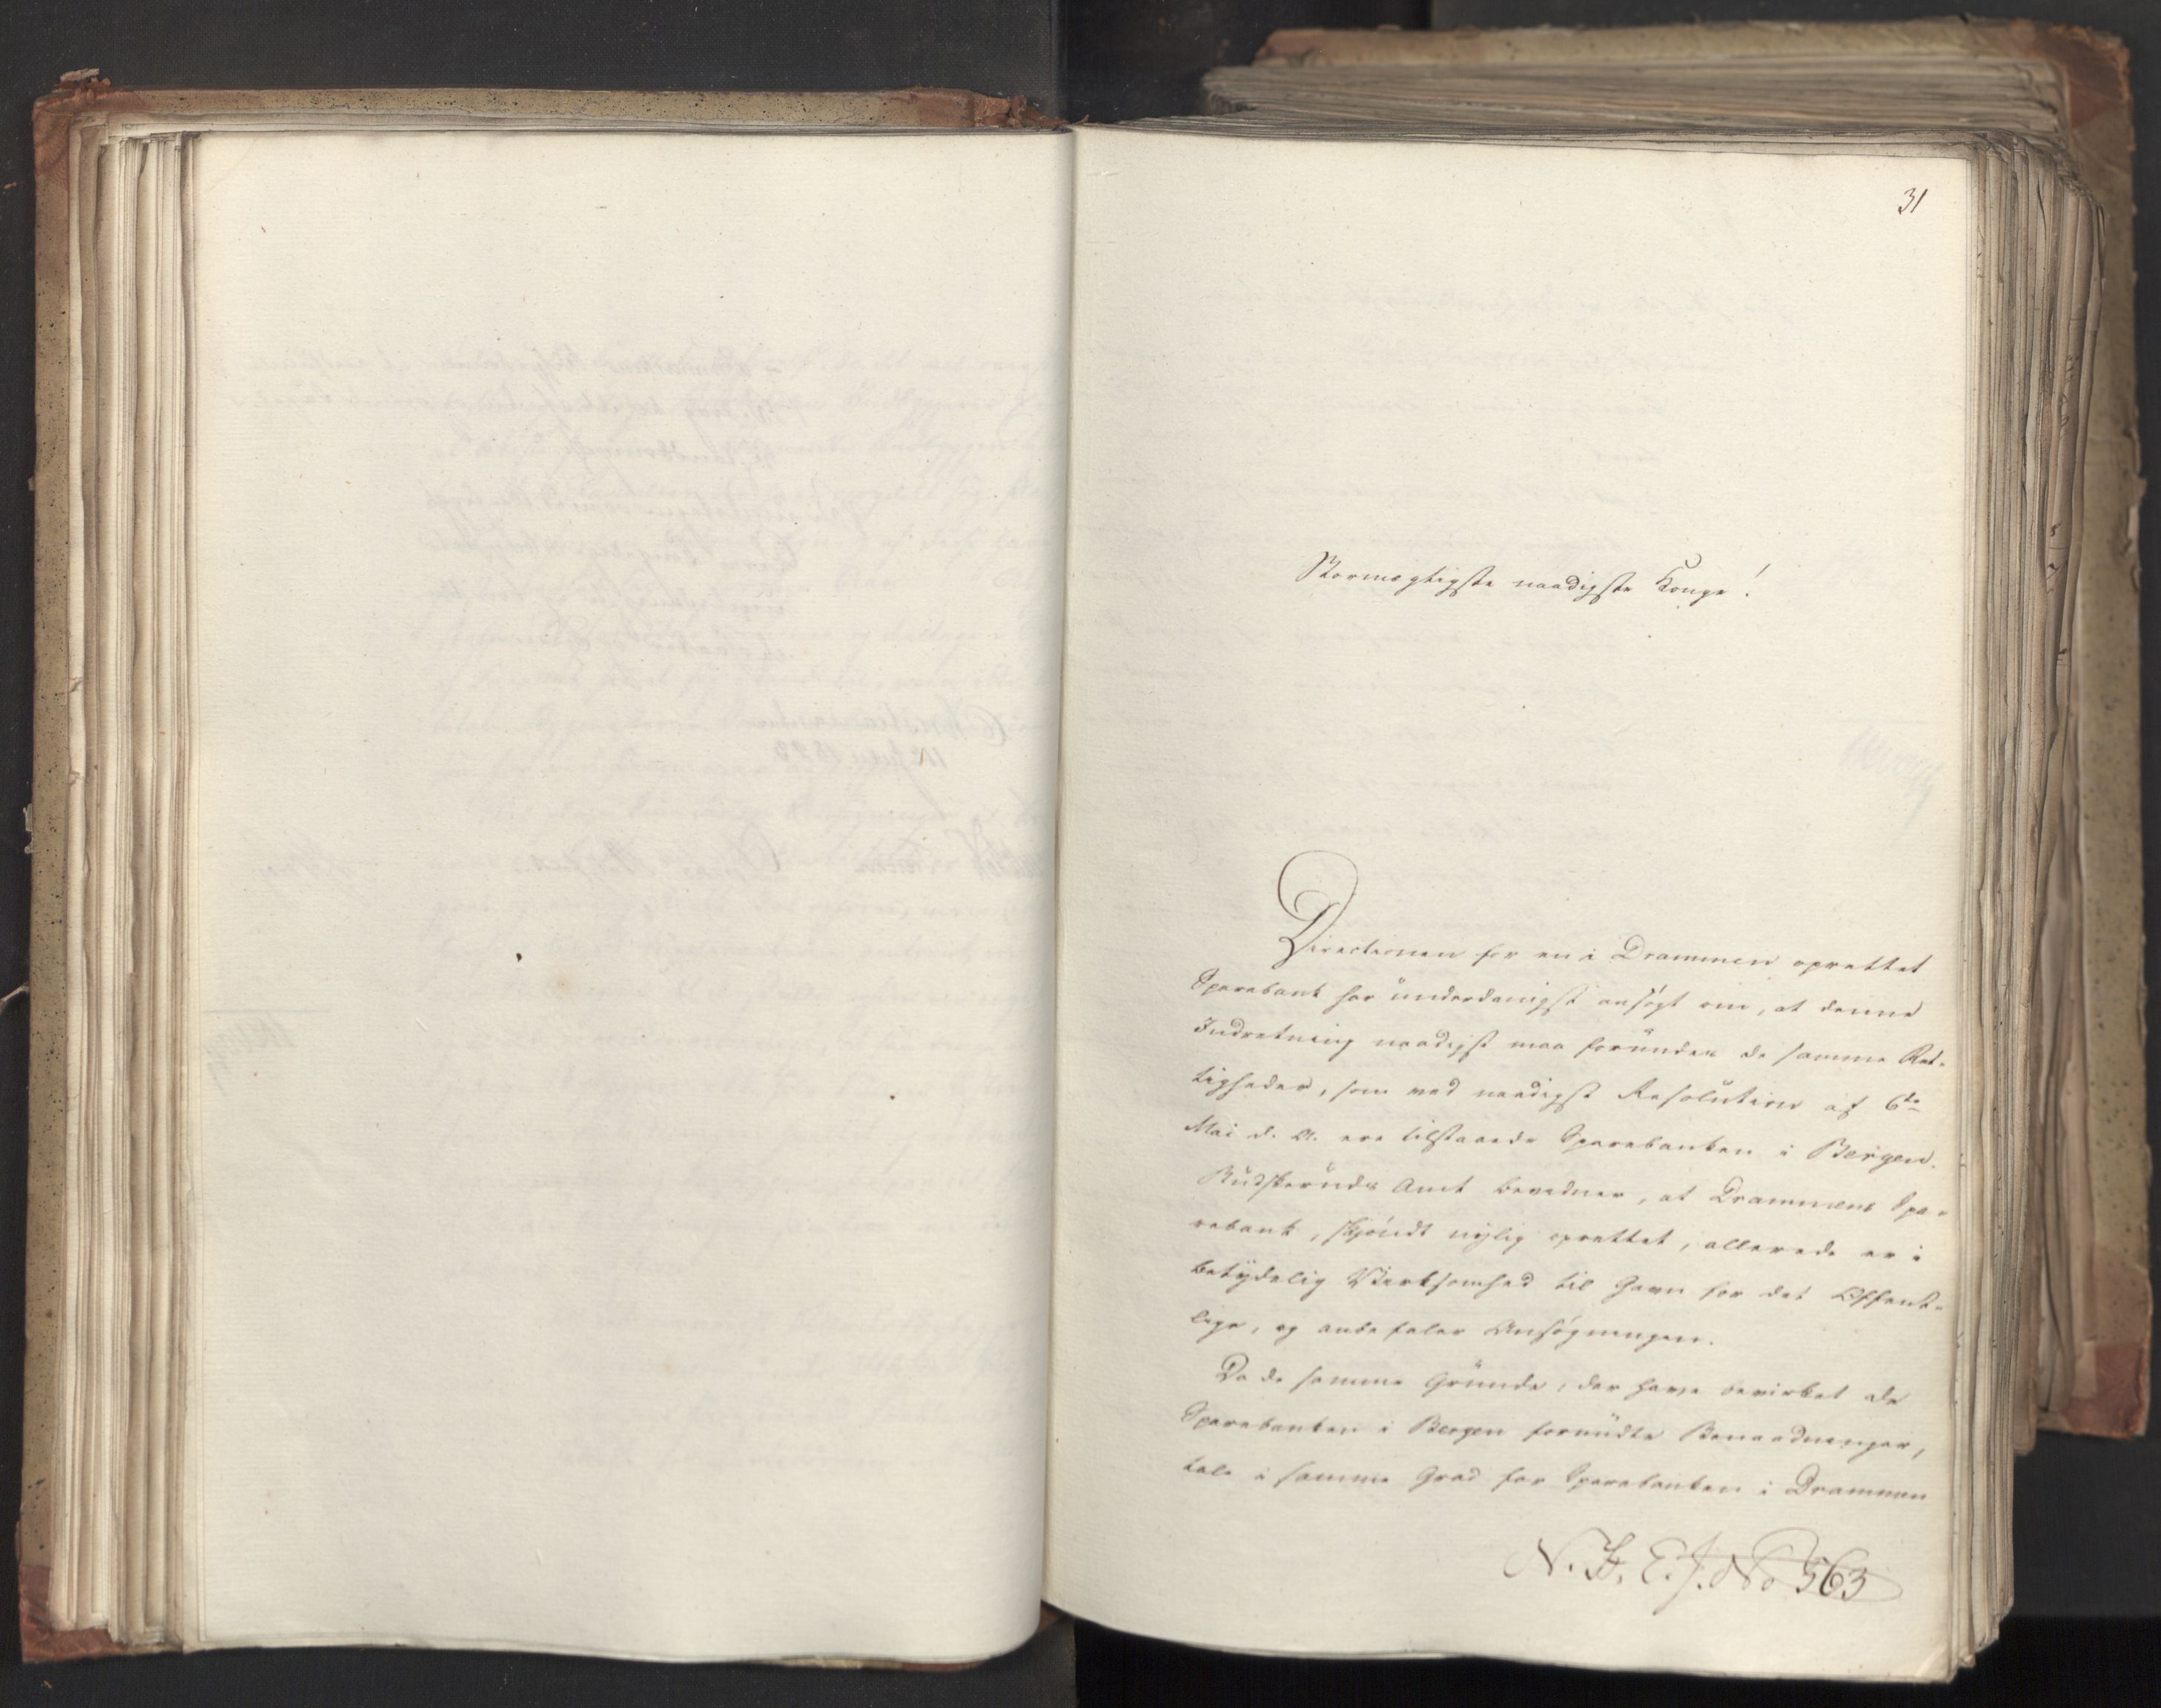 31
Stormægtigste naadigste Konge!
Directionen for en i Drammen oprettet
Sparebank har underdanigst ansøgt om, at denne
Indretning naadigst maa forundes de samme Ret-
tigheder, som ved naadigst Resolution af 6te
Mai d. A. ere tilstaaede Sparebanken i Bergen.
Budskeruds Amt bevidner, at Drammens Spa-
rebank, skjøndt nylig oprettet, allerede er i
betydelig Virksomhed til Gavn for det Offent-
lige, og anbefaler Ansøgningen.
Da de samme Grunde, der have bevirket de
Sparebanken i Bergen forundte Benaadninger,
tale i samme Grad for Sparebanken i Drammen
N. H. E. J. No 563